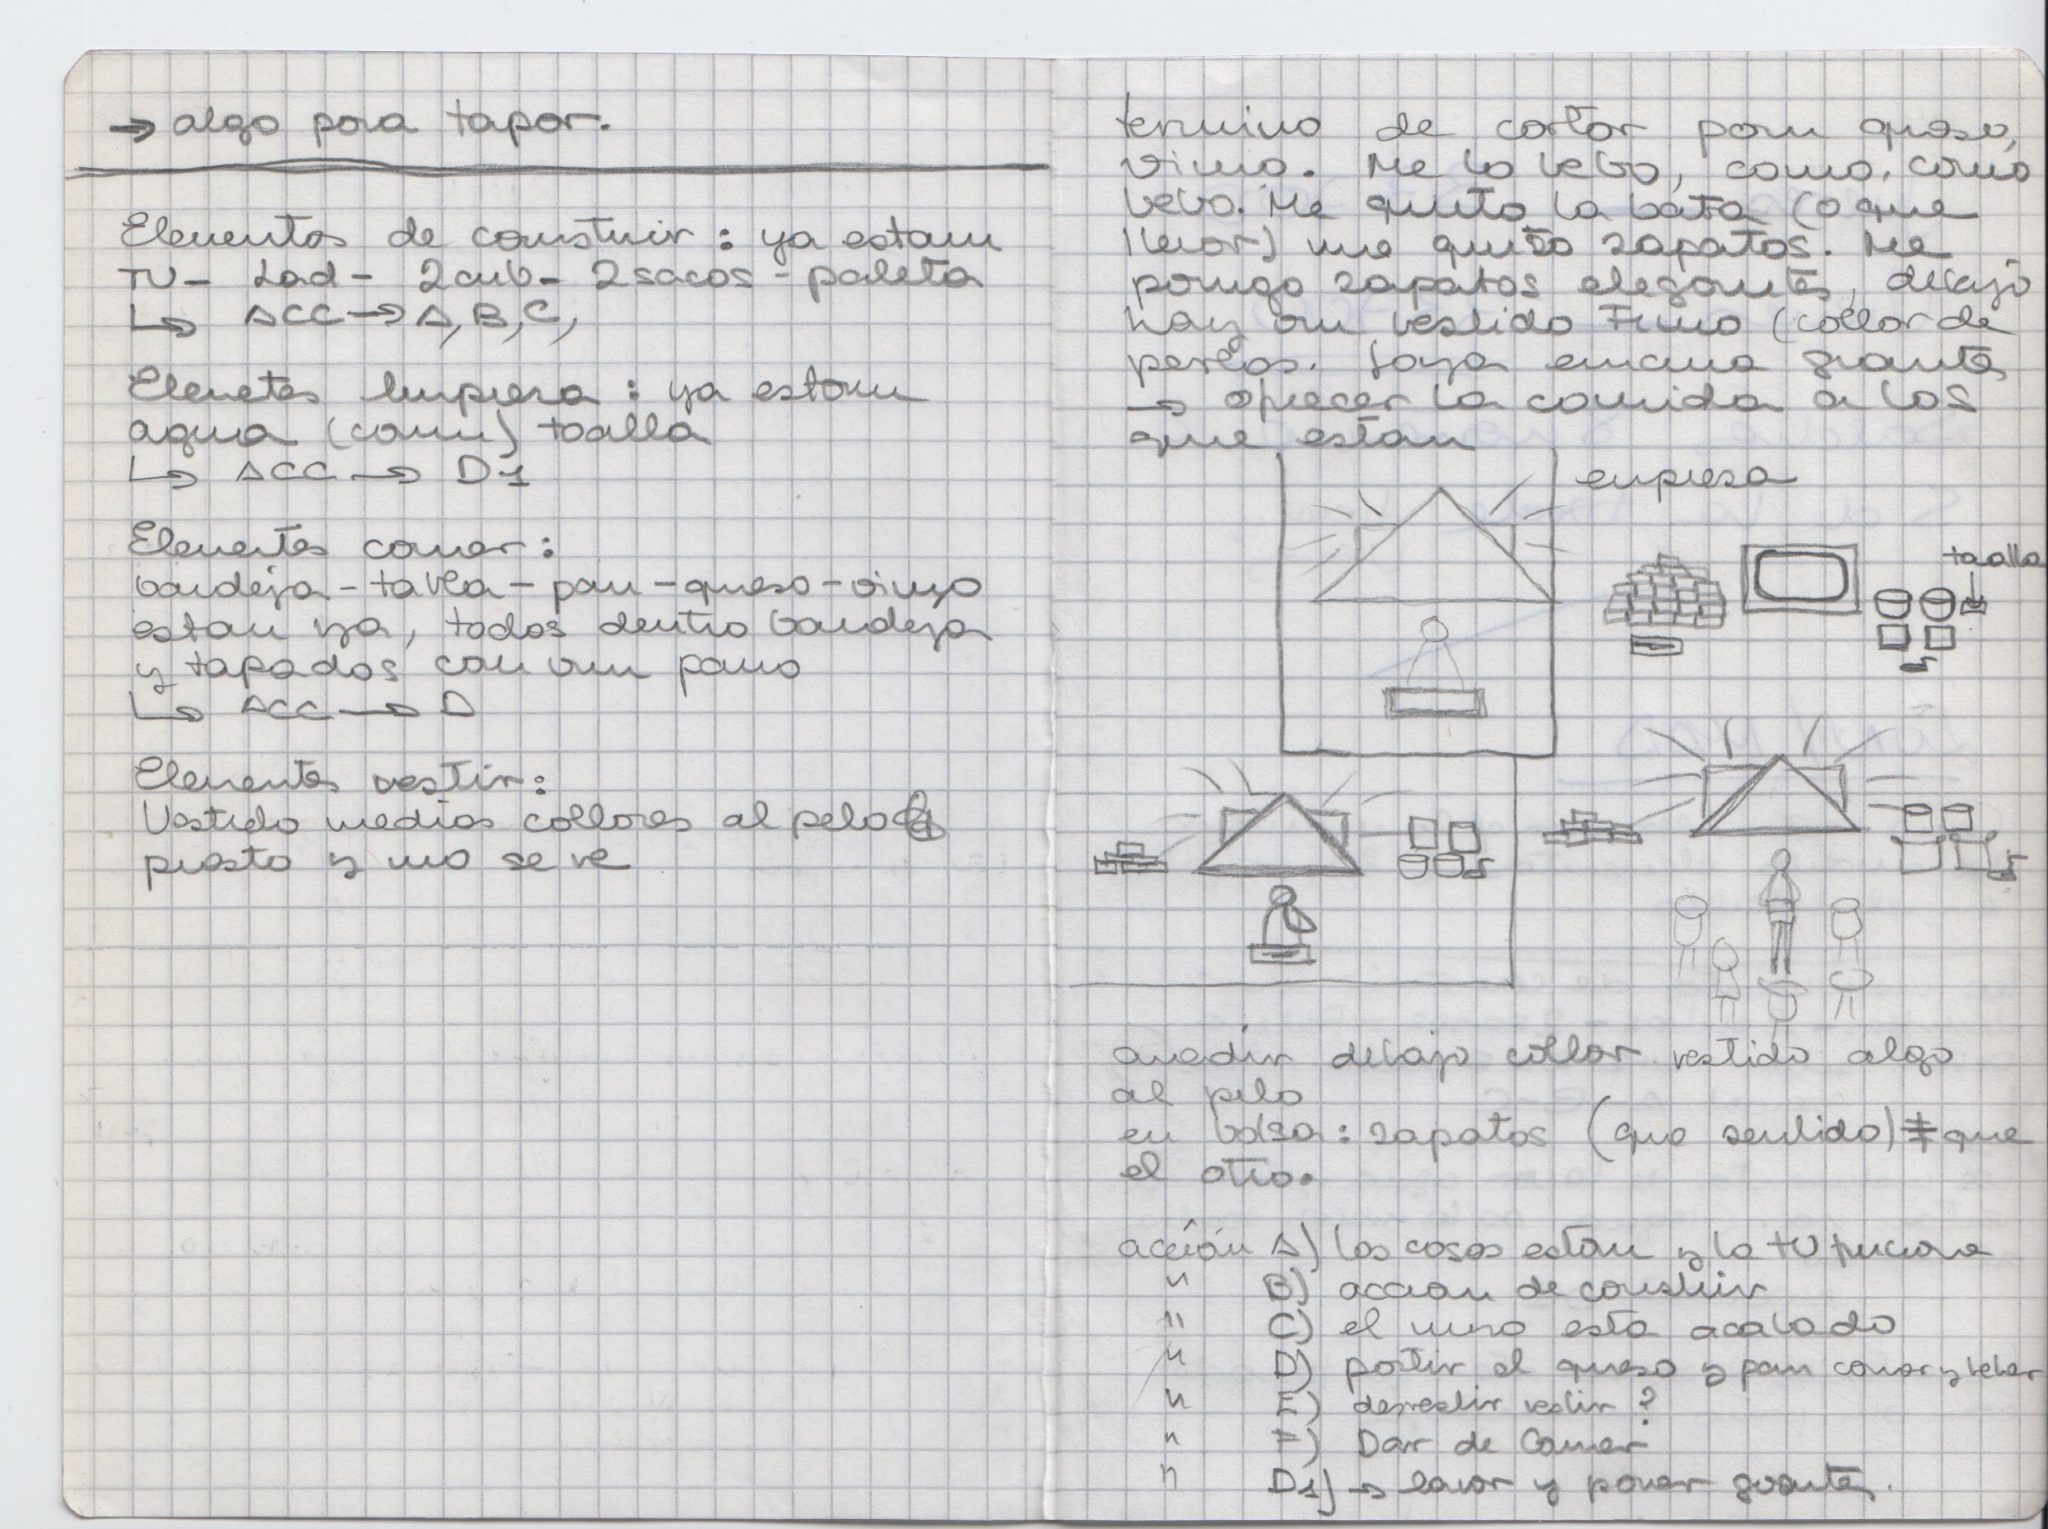 → algo para tapar.
Elementos de construir : ya estan
TV - Lad - 2 cub - 2 sacos - paleta
↳ ACC → A, B, C,
Elemetes limpieza : ya estan
agua (con) toalla
↳ ACC → D1
Elementes comer :
bandeja - tabla - pan - queso - vino
estan ya, todos dentro bandeja
y tapados con un pano
↳ ACC → D
Elementes vestir :
Vestido medias collares al pelo
puesto y no se ve
termino de cortar pan queso,
vino. Me lo bebo, como, como
bebo. Me quito la bata (o que
llevar) me quito zapatos. Me
pongo zapatos elegantes, debajo
hay un vestido Fino (collar de
perlas. Joya encima guantes
→ ofrecer la comida a los
que estan
empieza
toalla
anadir debajo collar vestido algo
al pelo
en bolsa : zapatos (que sentido) ≠ que
el otro.
acción A) las cosas estan y la TV funciona
" B) accion de construir
" C) el muro esta acabado
" D) partir el queso y pan comer y beber
" E) desvestir vestir ?
" F) Dar de Comer
" D1) → lavar y poner guantes.